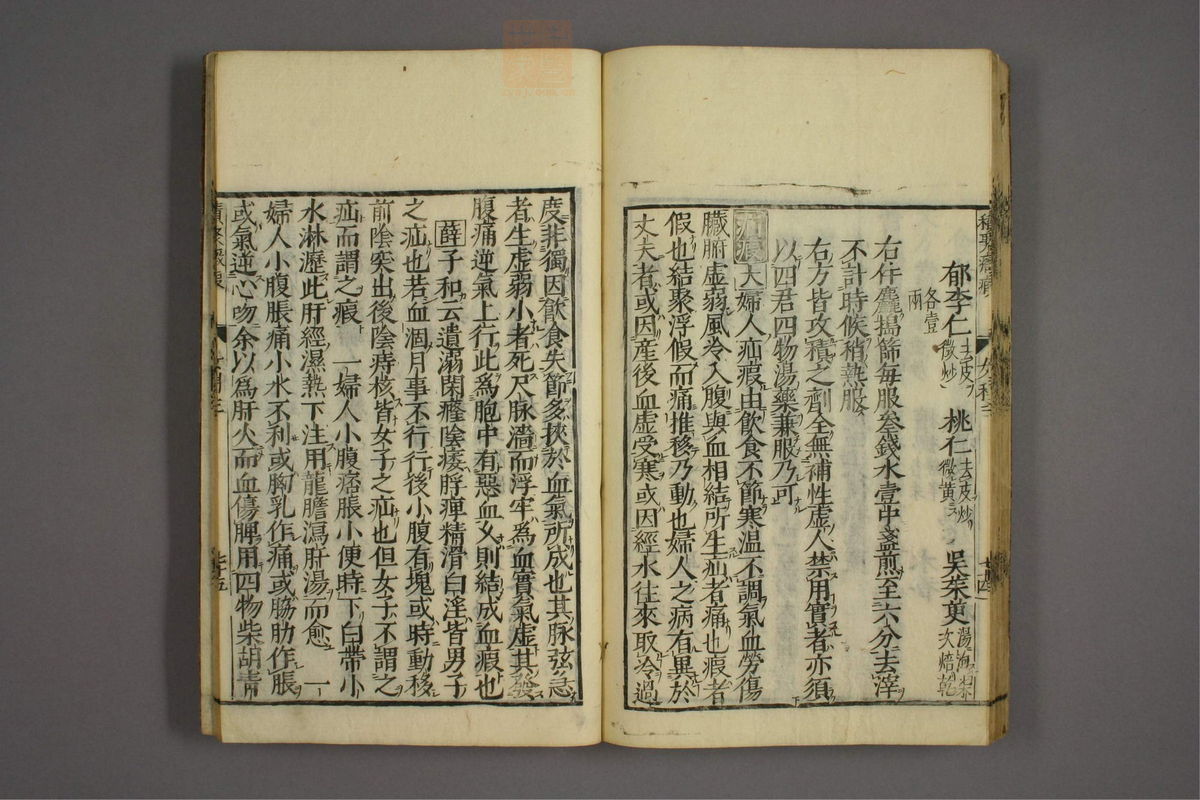 郁李仁 去皮微炒 桃仁 去皮炒微黄 吳茱萸 湯泡次焙乾
各壹兩
右件麄搗篩每服叁錢水壹中盞煎至六分去滓
不計時候稍熱服
右方皆攻積之劑全無補性虛人禁用實者亦須
以四君四物湯藥兼服乃可
疝瘕 大 婦人疝瘕由飲食不節寒温不調氣血勞傷
臓腑虛弱風冷入腹與血相結所生疝者痛也瘕者
假也結聚浮假而痛推移乃動也婦人之病有異於
丈夫者或因産後血虛受寒或因經水往來取冷過
積聚癥瘕 女科三 廿四
度非獨因飲食失節多挾於血氣所成也其脉弦急
者生虛弱小者死尺脉濇而浮牢為血實氣虛其發
腹痛逆氣上行此為胞中有惡血久則結成血瘕也
薛 子和云遺溺閉癃陰痿脬痺精滑白淫皆男子
之疝也若血涸月事不行行後小腹有塊或時動移
前陰突出後陰痔核皆女子之疝也但女子不謂之
疝而謂之瘕 一婦人小腹痞脹小便時下白帶小
水淋瀝此肝經濕熱下注用龍膽瀉肝湯而愈 一
婦人小腹脹痛小水不利或胸乳作痛或脇肋作脹
或氣逆心吻余以為肝火而血傷脾用四物柴胡青
七五